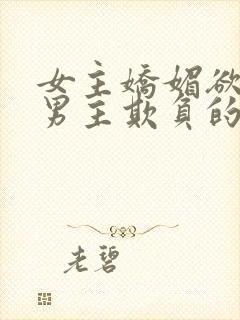 女主嬌媚欲
男主欺負的
老碧